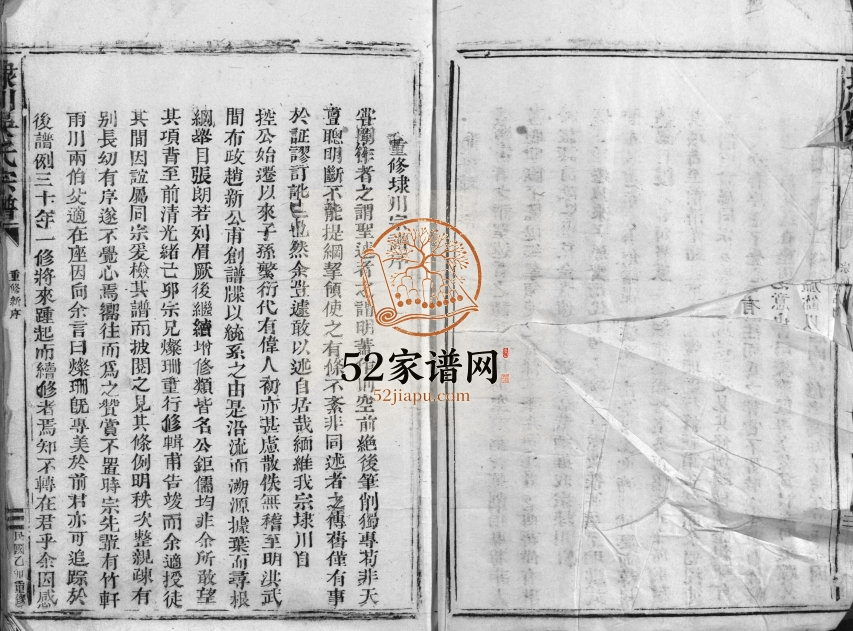 重修埭川宗譜序
嘗聞作者之謂聖述者之謂明著 空前絕後筆削獨專苟非天
亶聰明斷不能提綱挈領使之有條不紊非同述者之傳舊僅有事
於証謬訂訛已也然余豈遽敢以述自居哉緬維我宗埭川自
控公始遷以來子孫繁衍代有偉人初亦甚慮散佚無稽至明洪武
間布政趙新公甫創譜牒以統系之由是沿流而溯源據葉而尋根
綱舉目張朗若列眉厥後繼續增修類皆名公鉅儒均非余所敢望
其項背至前清光緒己卯宗兄燦珊重行修輯甫告竣而余適授徒
其間因誼屬同宗爰檢其譜而披閱之見其條例明秩次整親疎有
別長幼有序遂不覺心焉嚮往而為之贊賞不置時宗先輩有竹軒
雨川兩伯父適在座因向余言曰燦珊既專美於前君亦可追踪於
後譜例三十年一修將來踵起而續修者焉知不轉在君乎余因感
埭川吳氏宗譜
重修新序
民國乙卯重修
52家谱网
52jiapu.com